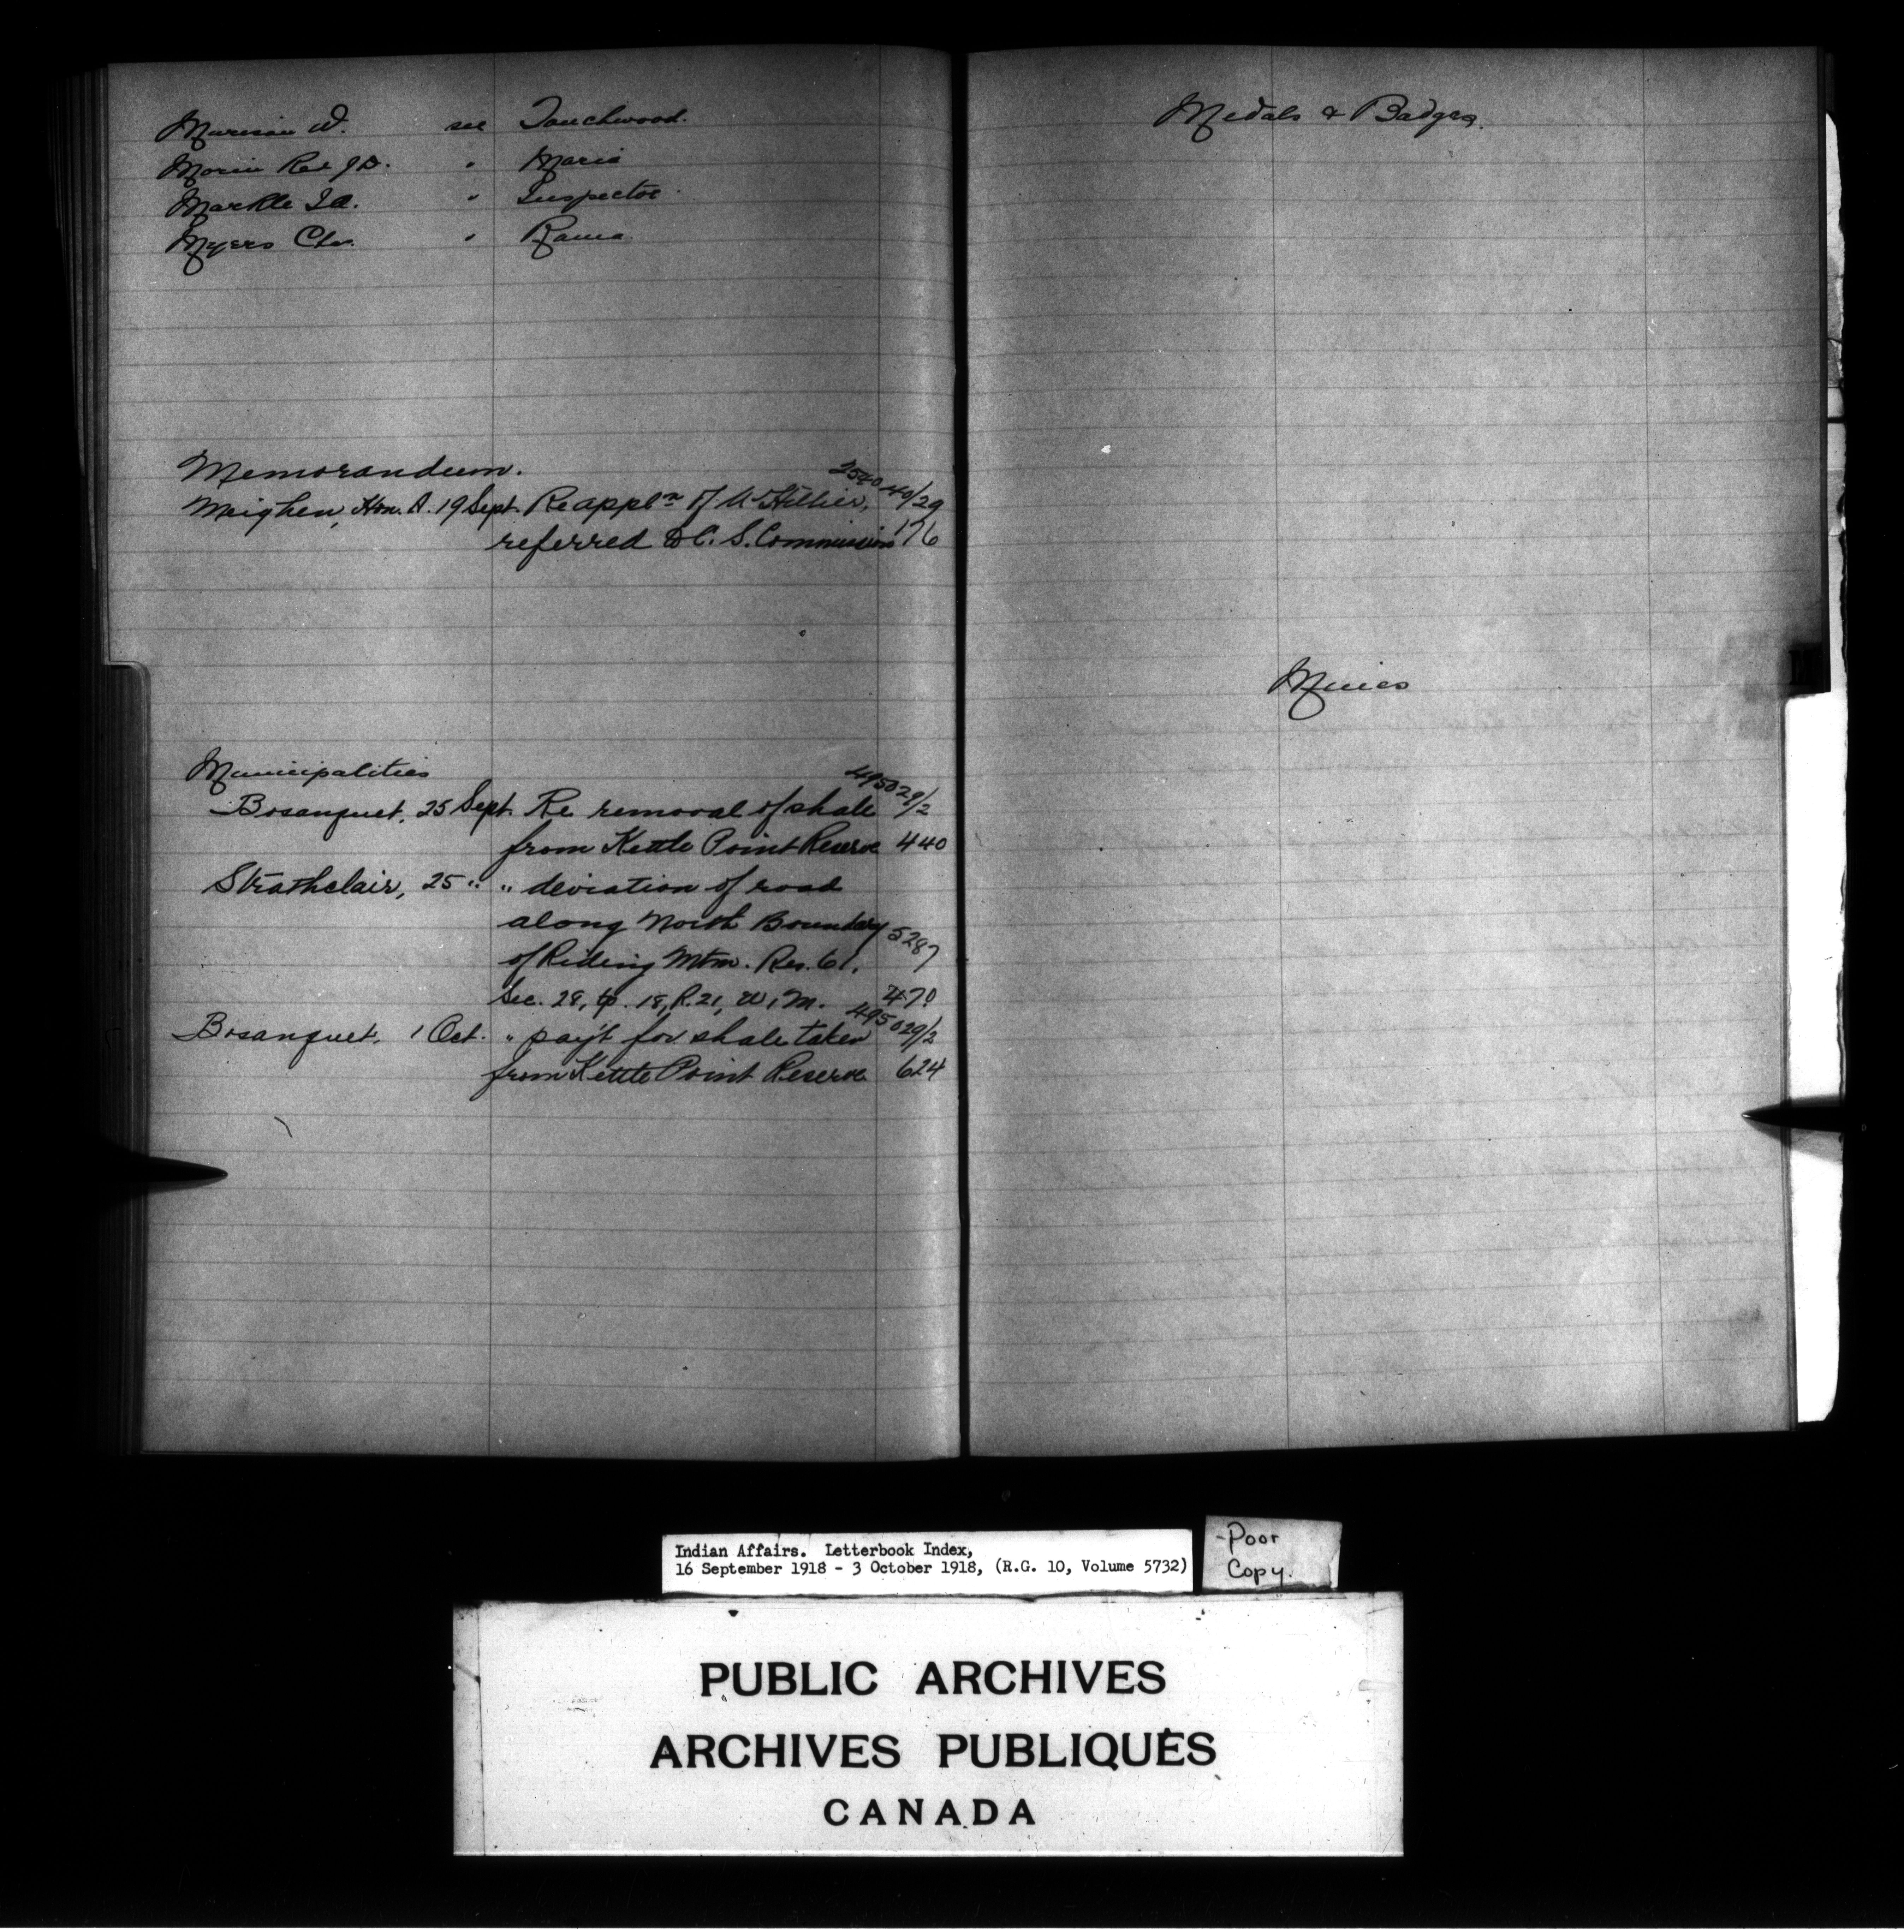 Murison W. see Touchwood.
Morin Rev J.D. " Maria
Markle J.A. " Inspector
Myers Chs. " Rama
Memorandum.
254040/29
Meighen, Hon. A. 19 Sept. Re applⁿ of Hillier,
referred to C. S. Commission 176
Municipalities
495029/2
Bosanquet, 25 Sept. Re removal of shale
from Kettle Point Reserve 440
Strathclair, 25 " " deviation of road
along North Boundary
5287
of Riding Mtn. Res. 61,
Sec. 28, tp. 18, R. 21, W. 1 M. 470
495029/2
Bosanquet, 1 Oct. " pay't for shale taken
from Kettle Point Reserve 624
Medals & Badges.
Mines
Indian Affairs. Letterbook Index,
16 September 1918 - 3 October 1918, (R.G. 10, Volume 5732)
-Poor
Copy.
PUBLIC ARCHIVES
ARCHIVES PUBLIQUES
CANADA